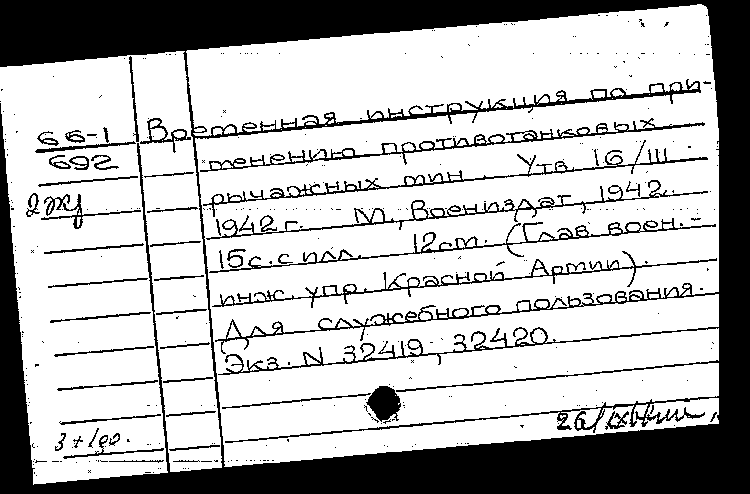 66-1 Временная инструкция по при-
692 менению противотанковых
2жу рычажных мин. Утв. 16/III
1942 г. М., Воениздат, 1942.
15 с. с илл. 12 см. (Глав. воен.-
инж. упр. Красной Армии).
Для служебного пользования.
Экз. N 32419, 32420.